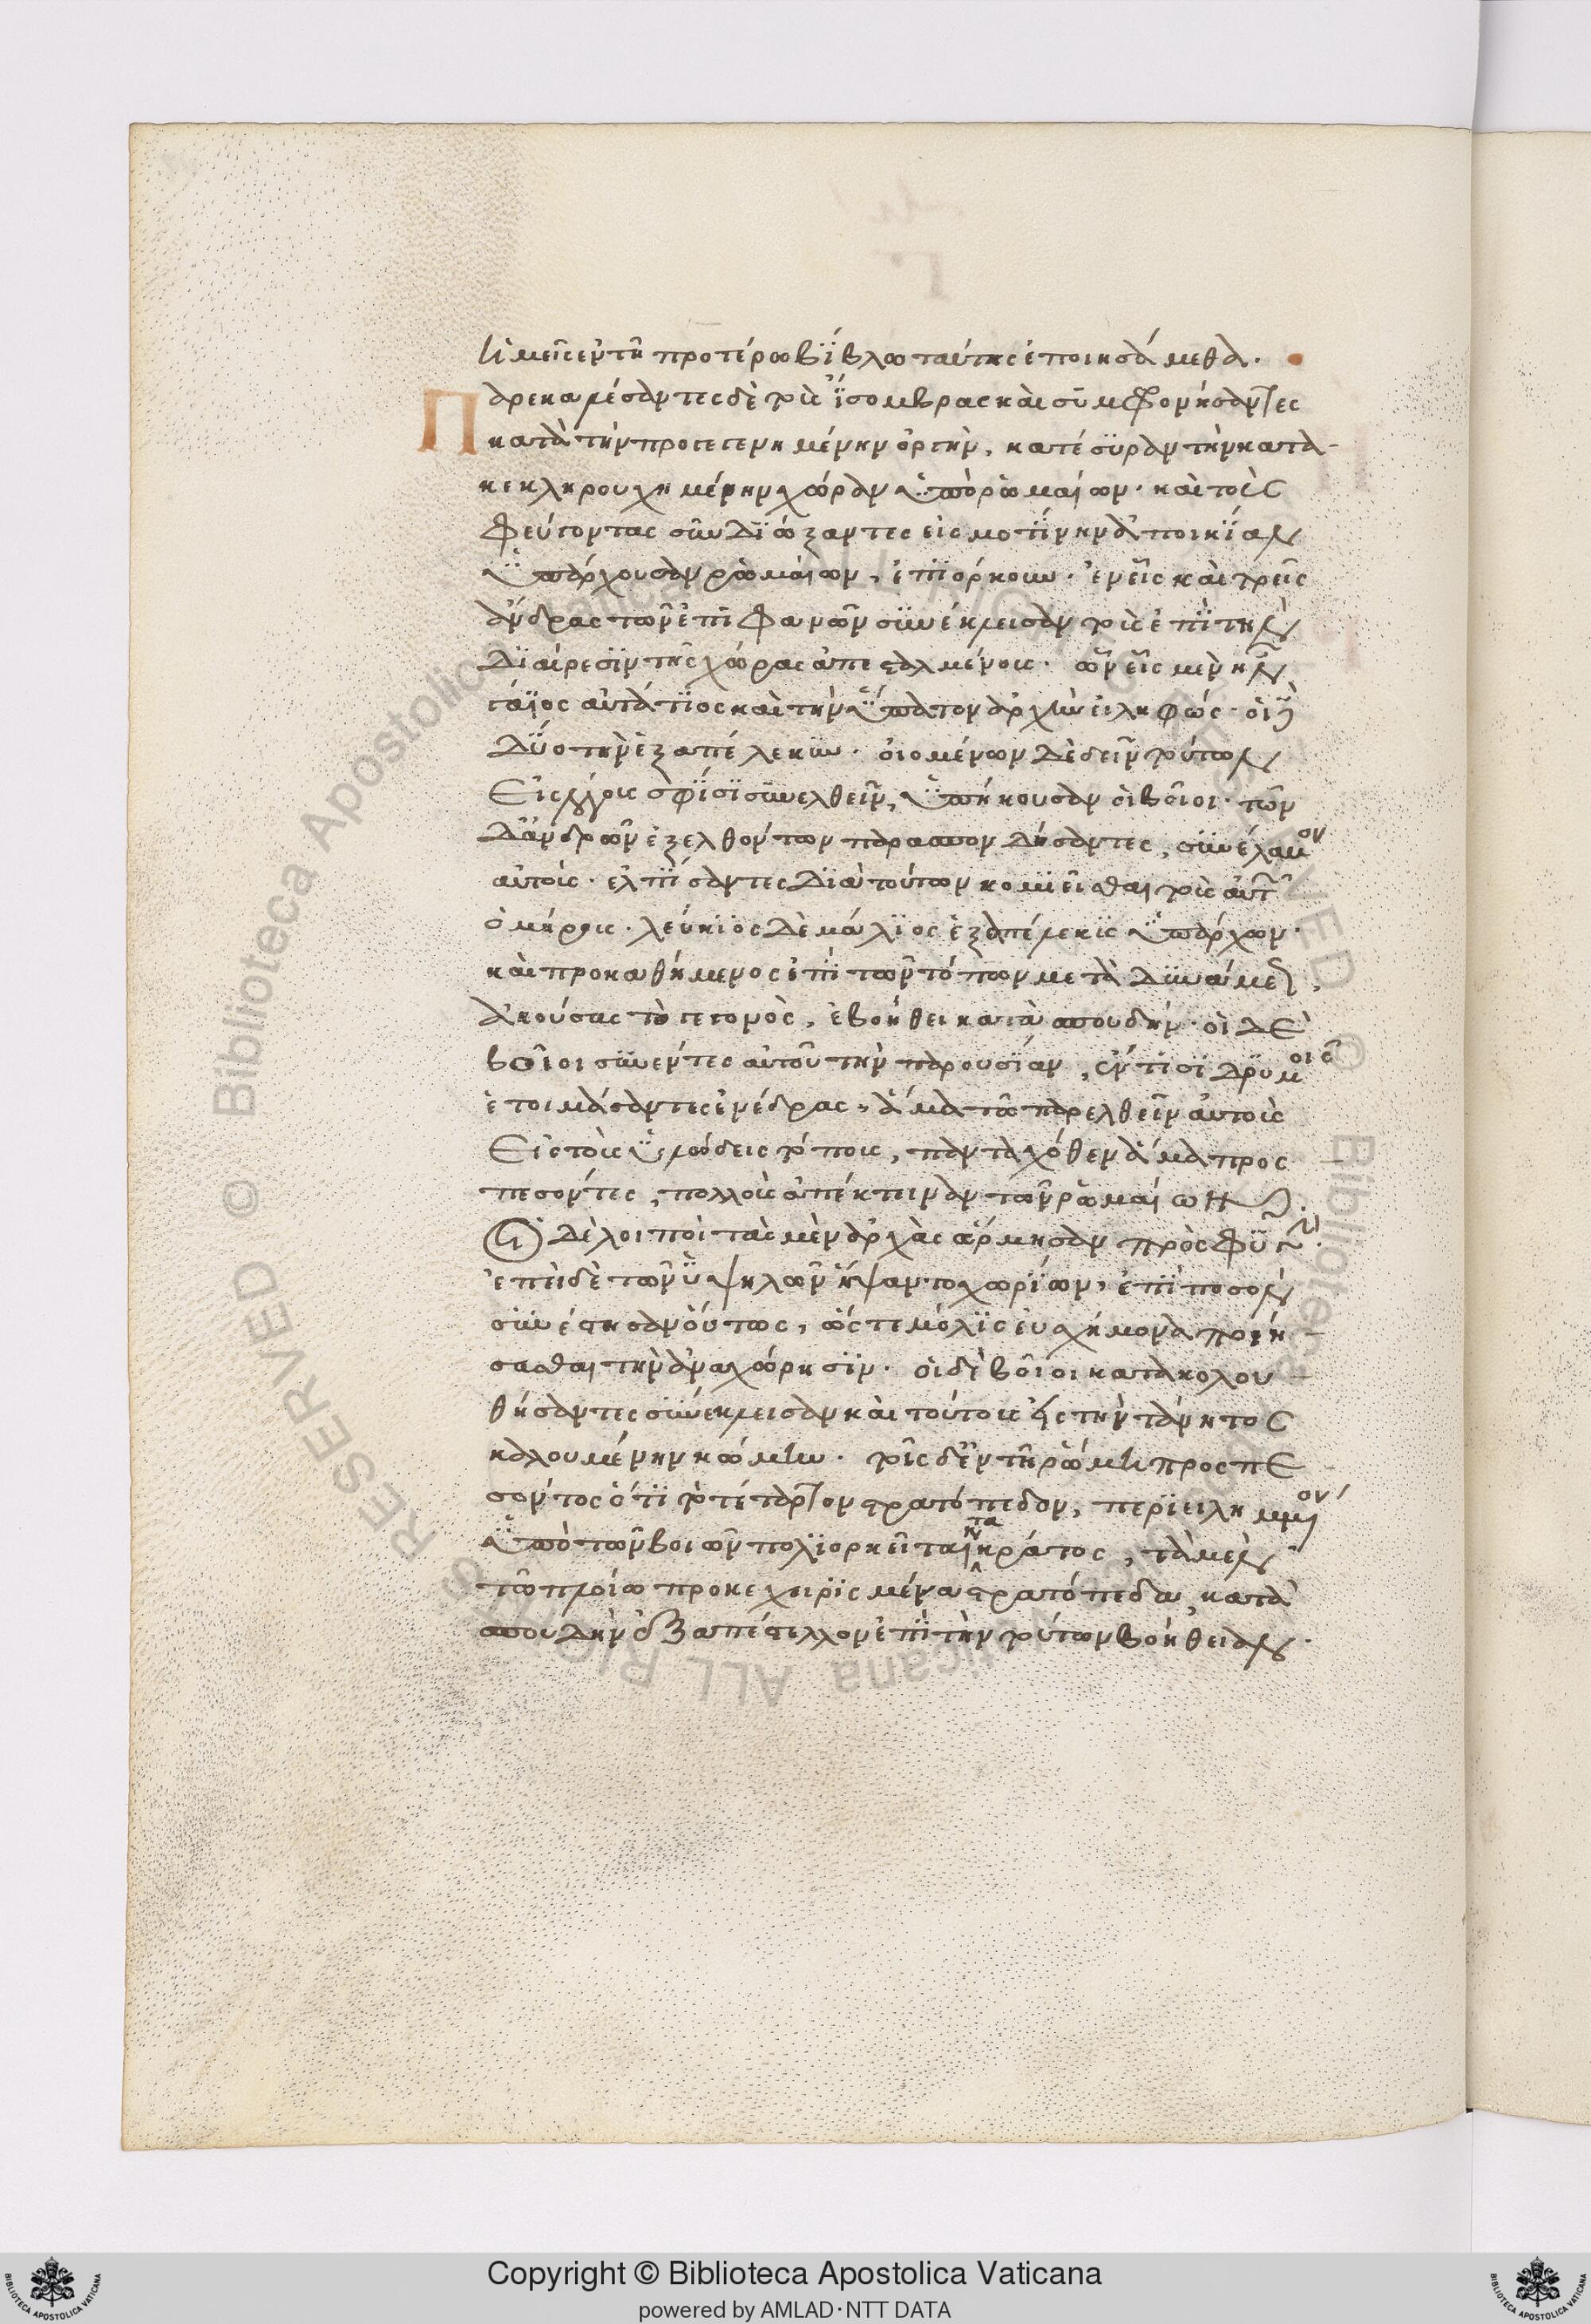 ἡμεῖς ἐν τῇ προτέρω βΐβλω ταύτης ἐποιησάμεθα.
Παρακαλέσαντες δὲ τοὺς ἴσομβρας καὶ συμφρονήσαντες
κατὰ τὴν προγεγενημένην ὀργὴν, κατέσυραν τὴν κατα-
κεκληρουχημένην χώραν ὑπὸ ρωμαίων. καὶ τοὺς
φεύγοντας συνδιώξαντες εἰς μοτίνην ἀποικίαν
ὑπάρχουσαν ρωμαίων, ἐπιόρκουν. ἐν εἷς καὶ τρεῖς
ἄνδρας τῶν ἐπιφανῶν συνέκλεισαν τοὺς ἐπὶ τὴν
διαίρεσιν τῆς χώρας ἀπεσταλμένους. ὧν εἷς μὲν ἦν
γάϊος λυτάτιος καὶ τὴν ὕπατον ἀρχὴν εἰληφώς. οἱ δὲ
δύο τὴν ἑξαπέλεκυν. οἰομένων δὲ δεῖν τούτων
εἰς λόγους σφίσι συνελθεῖν, ὑπήκουσαν οἱ βοῖοι. τῶν
δ' ἀνδρῶν ἐξελθόντων παρασπονδήσαντες, συνέλαμον
αὐτοὺς. ἐλπίσαντες διὰ τούτων κομιεῖσθαι τοὺς αὐτῶν
ὁμήρους. λεύκιος δὲ μάλιος ἑξαπέλεκυς ὑπάρχων.
καὶ προκαθήμενος ἐπὶ τῶν τόπων μετὰ δυνάμεως,
ἀκούσας τὸ γεγονὸς, ἐβοήθει κατὰ σπουδήν. οἱ δὲ
βοῖοι συνέντες αὐτοῦ τὴν παρουσίαν, ἔν τισι δρυμοῖς
ἑτοιμάσαντες ἐνέδρας, ἅμα τῶ παρελθεῖν αὐτοὺς
εἰς τοὺς ὑλώδεις τόπους, πανταχόθεν ἅμα προς
πεσόντες, πολλοὺς ἀπέκτειναν τῶν ρωμαίων.
οἱ δὲ λοιποὶ τὰς μὲν ἀρχὰς ὥρμησαν πρὸς φυγὴν.
ἐπεὶ δὲ τῶν ὑψηλῶν ἥψαντο χωρίων, ἐπὶ ποσὸν
συνέστησαν οὕτως, ὥστε μόλις εὐσχήμονα ποιή-
σασθαι τὴν ἀναχώρησιν. οἱ δὲ βοῖοι κατακολου-
θήσαντες συνέκλεισαν καὶ τούτους εἰς τὴν τάνητος
καλουμένην κώμην. τοῖς δ' ἐν τῇ ρώμῃ προςπε-
σόντος ὅτι τὸ τέταρτον στρατόπεδον, περιειλημμένον
ὑπὸ τῶν βοιῶν πολιορκεῖται κατὰ κράτος, τὰ μὲν
τῶ πλοίω προκεχειρισμένα στρατόπεδα, κατὰ
σπουδὴν ἐξαπέστελλον ἐπὶ τὴν τούτων βοήθειαν.
Copyright © Biblioteca Apostolica Vaticana
powered by AMLAD·NTT DATA